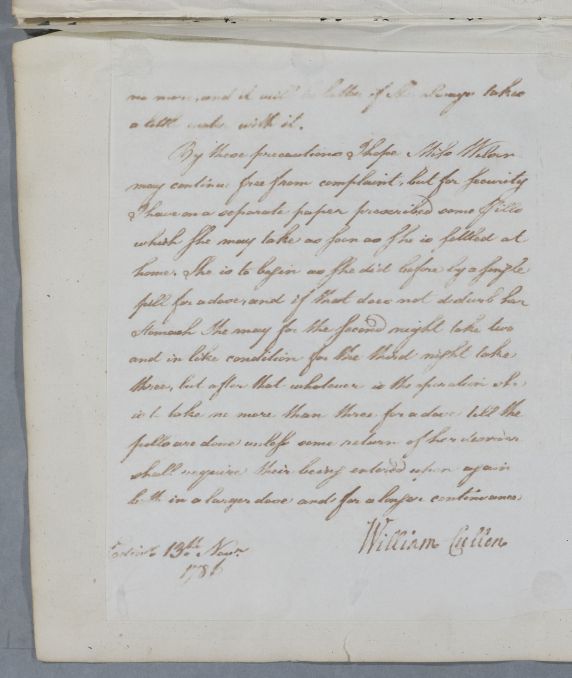 no more, and it will be better if She always takes
a little water with it.
By these precautions I hope Miss Wilson
may continue free from complaint, but for security
I have on a separate paper prescribed some Pills
which She may take as soon as She is settled at
home. She is to begin as She did before by a single
pill for a dose, and if that does not disturb her
Stomach She may for the Second night take two
and in like condition for the third night take
three, but after that whatever is the operation she
is to take no more than three for a dose till the
pills are done unless some return of her
shall require their being entered upon again
both in a larger dose and for a longer continuance
William Cullen
Edinr. 13th. Novr.
1786